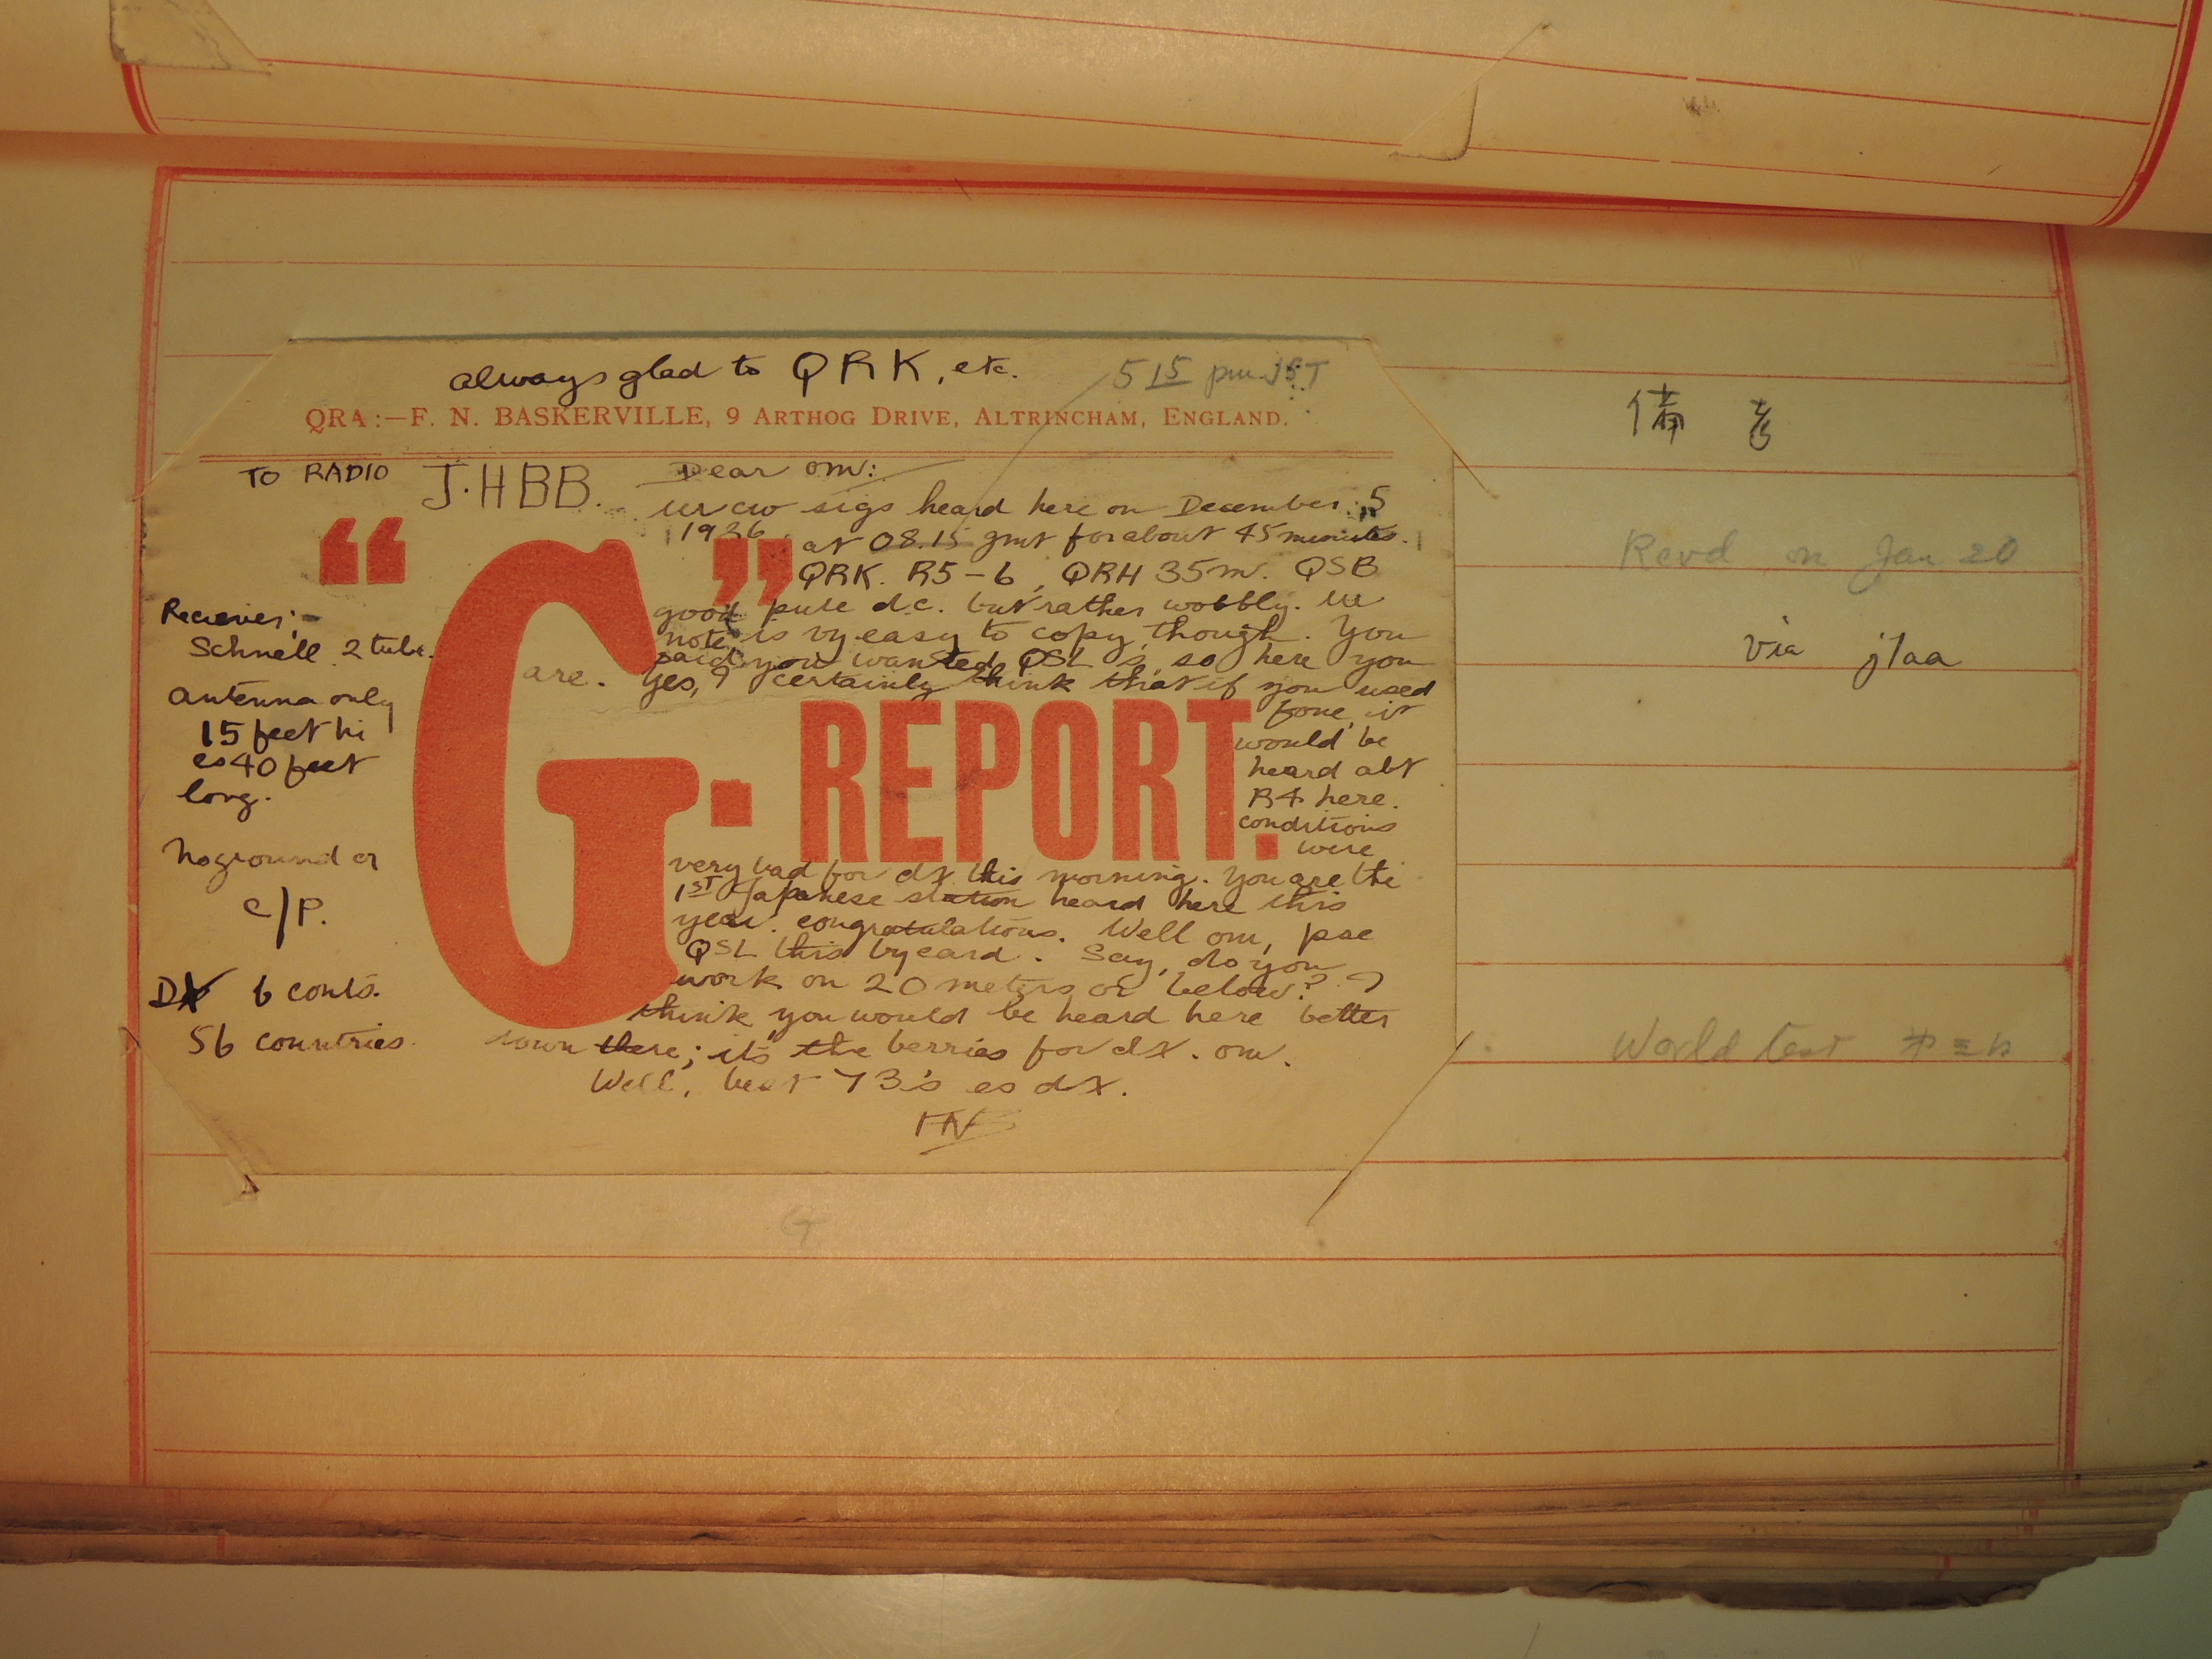 always glad to QRK, etc.
5 15 pm JST
QRA:—F. N. BASKERVILLE, 9 ARTHOG DRIVE, ALTRINCHAM, ENGLAND.
TO RADIO J.HBB.
Dear om:
ur cw sigs heard here on December 5
1926 at 08.15 gmt for about 45 minutes.
QRK. R5-6, QRH 35m. QSB
good pure d.c. but rather wobbly. ur
note is vy easy to copy, though. You
said you wanted QSL's, so here you
are. Yes, I certainly think that if you used
fone it
would be
heard abt
R4 here.
conditions
were
very bad for dx this morning. You are the
1ST Japanese station heard here this
year. congratulations. Well om, pse
QSL this by card. Say, do you
work on 20 meters or below? I
think you would be heard here better
down there; it's the berries for dx. om.
Well, best 73's es dx.
"G"-REPORT.
Receiver:-
Schnell 2 tube.
antenna only
15 feet hi
es 40 feet
long.
No ground or
c/P.
DX 6 conts.
56 countries.
備考
Recvd on Jan 20
via j1aa
World test
G